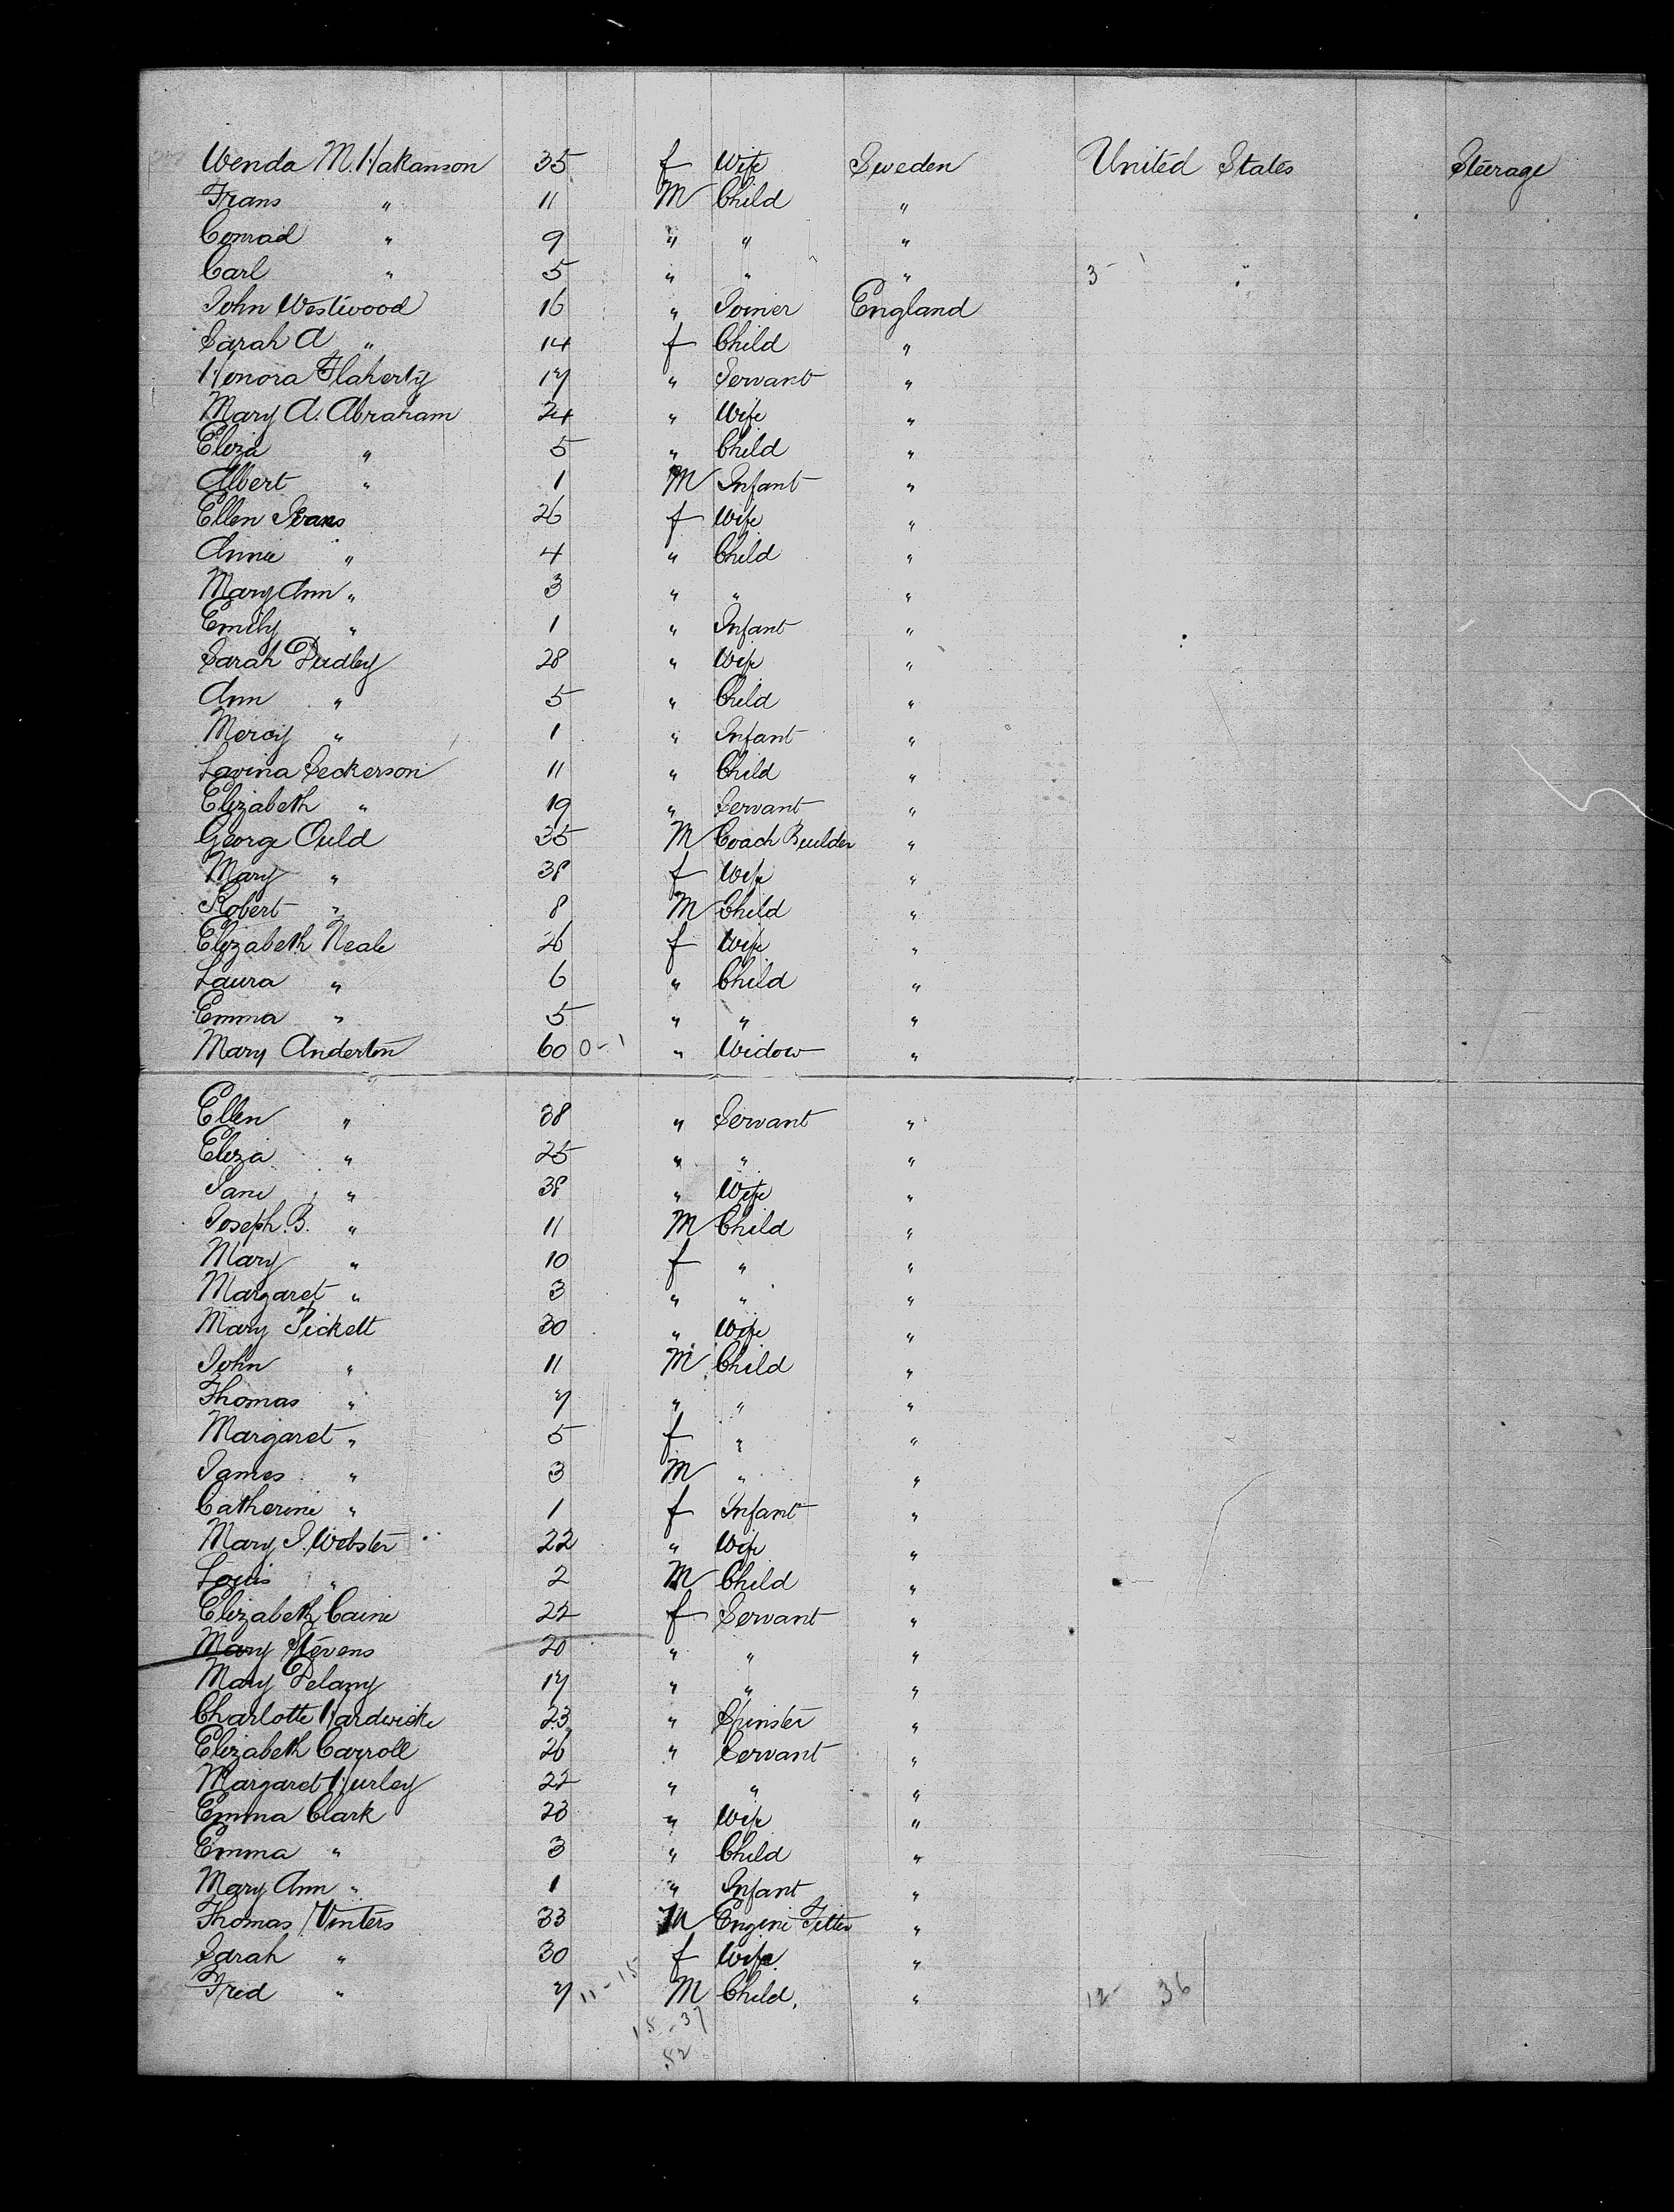 Wenda M. Hakanson 35 f Wife Sweden United States Steerage
Frans " 11 M Child "
Conrad " 9 " " "
Carl " 5 " " " 3-
John Westwood 16 " Joiner England
Sarah A " 14 f Child "
Honora Flaherty 17 " Servant "
Mary A. Abraham 24 " Wife "
Eliza " 5 " Child "
Albert " 1 M Infant "
Ellen 26 f Wife "
Annie " 4 " Child "
Mary Ann " 3 " " "
Emily " 1 " Infant "
Sarah Dudley 28 " Wife "
Ann " 5 " Child "
Mercy " 1 " Infant "
Lavina Seckerson 11 " Child "
Elizabeth " 19 " Servant "
George Ould 35 M Coach Builder "
Mary " 38 f Wife "
Robert " 8 M Child "
Elizabeth Neale 26 f Wife "
Laura " 6 " Child "
Emma " 5 " " "
Mary Anderton 60 0-1 " Widow "
Ellen " 38 " Servant "
Eliza " 25 " " "
Jane " 38 " Wife "
Joseph B. " 11 M Child "
Mary " 10 f " "
Margaret " 3 " " "
Mary Pickett 30 " Wife "
John " 11 M Child "
Thomas " 7 " " "
Margaret " 5 f " "
James " 3 M " "
Catherine " 1 f Infant "
Mary J. Webster 22 " Wife "
Louis " 2 M Child "
Elizabeth Caine 22 f Servant "
Mary Stevens 20 " " "
Mary Delany 17 " " "
Charlotte Hardwicke 23 " Spinster "
Elizabeth Carroll 26 " Servant "
Margaret Hurley 22 " " "
Emma Clark 23 " Wife "
Emma " 3 " Child "
Mary Ann " 1 " Infant "
Thomas Vinters 33 M Engine Fitter "
Sarah " 30 f Wife "
Fred " 7 11-15 M Child, " 12- 36
15-37
52